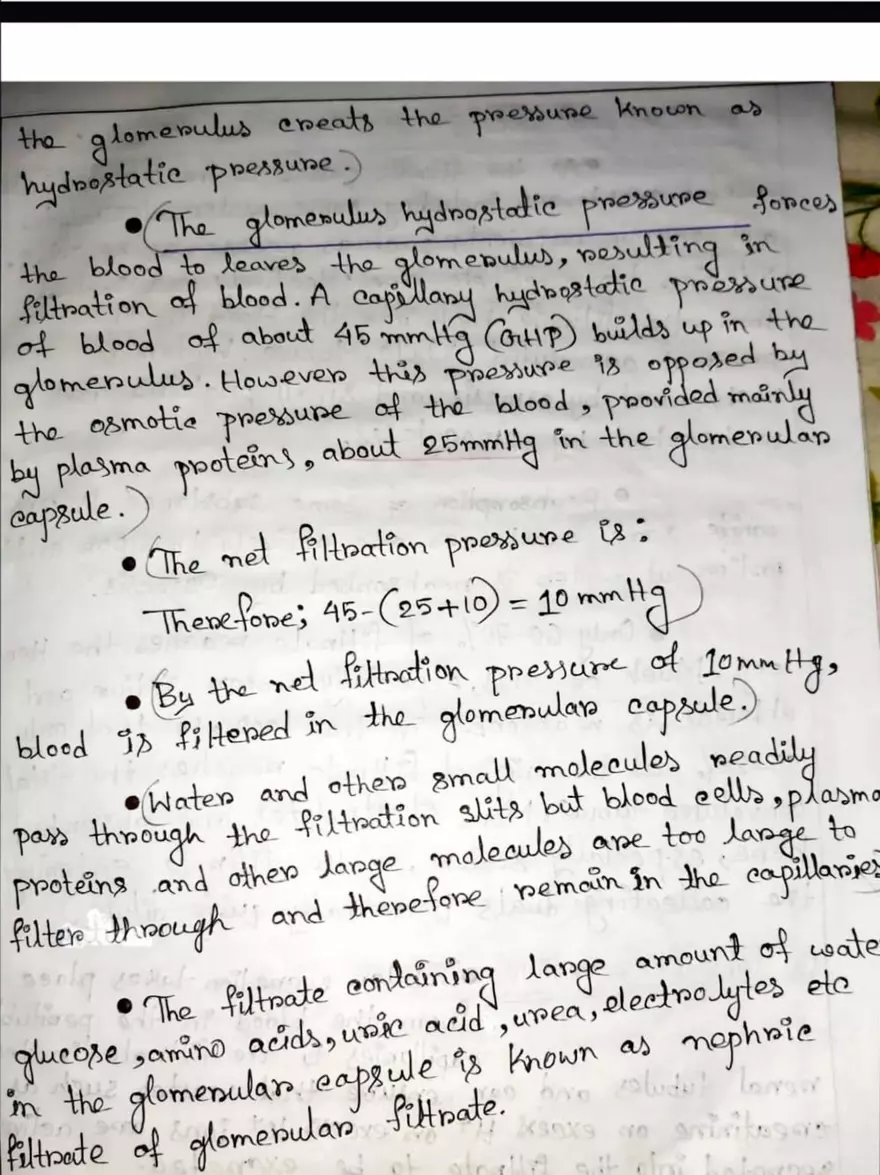 the glomerulus creats the pressure known as
hydrostatic pressure.)
• (The glomerulus hydrostatic pressure forces
the blood to leaves the glomerulus, resulting in
filtration of blood. A capillary hydrostatic pressure
of blood of about 45 mmHg (GHP) builds up in the
glomerulus. However this pressure is opposed by
the osmotic pressure of the blood, provided mainly
by plasma proteins, about 25mmHg in the glomerular
capsule.)
• (The net filtration pressure is:
Therefore; 45-(25+10) = 10 mmHg)
• (By the net filtration pressure of 10mmHg,
blood is filtered in the glomerular capsule.)
• (Water and other small molecules readily
pass through the filtration slits but blood cells, plasma
proteins and other large molecules are too large to
filter through and therefore remain in the capillaries
• The filtrate containing large amount of wate
glucose, amino acids, uric acid, urea, electrolytes etc
in the glomerular capsule is known as nephric
filtrate of glomerular filtrate.